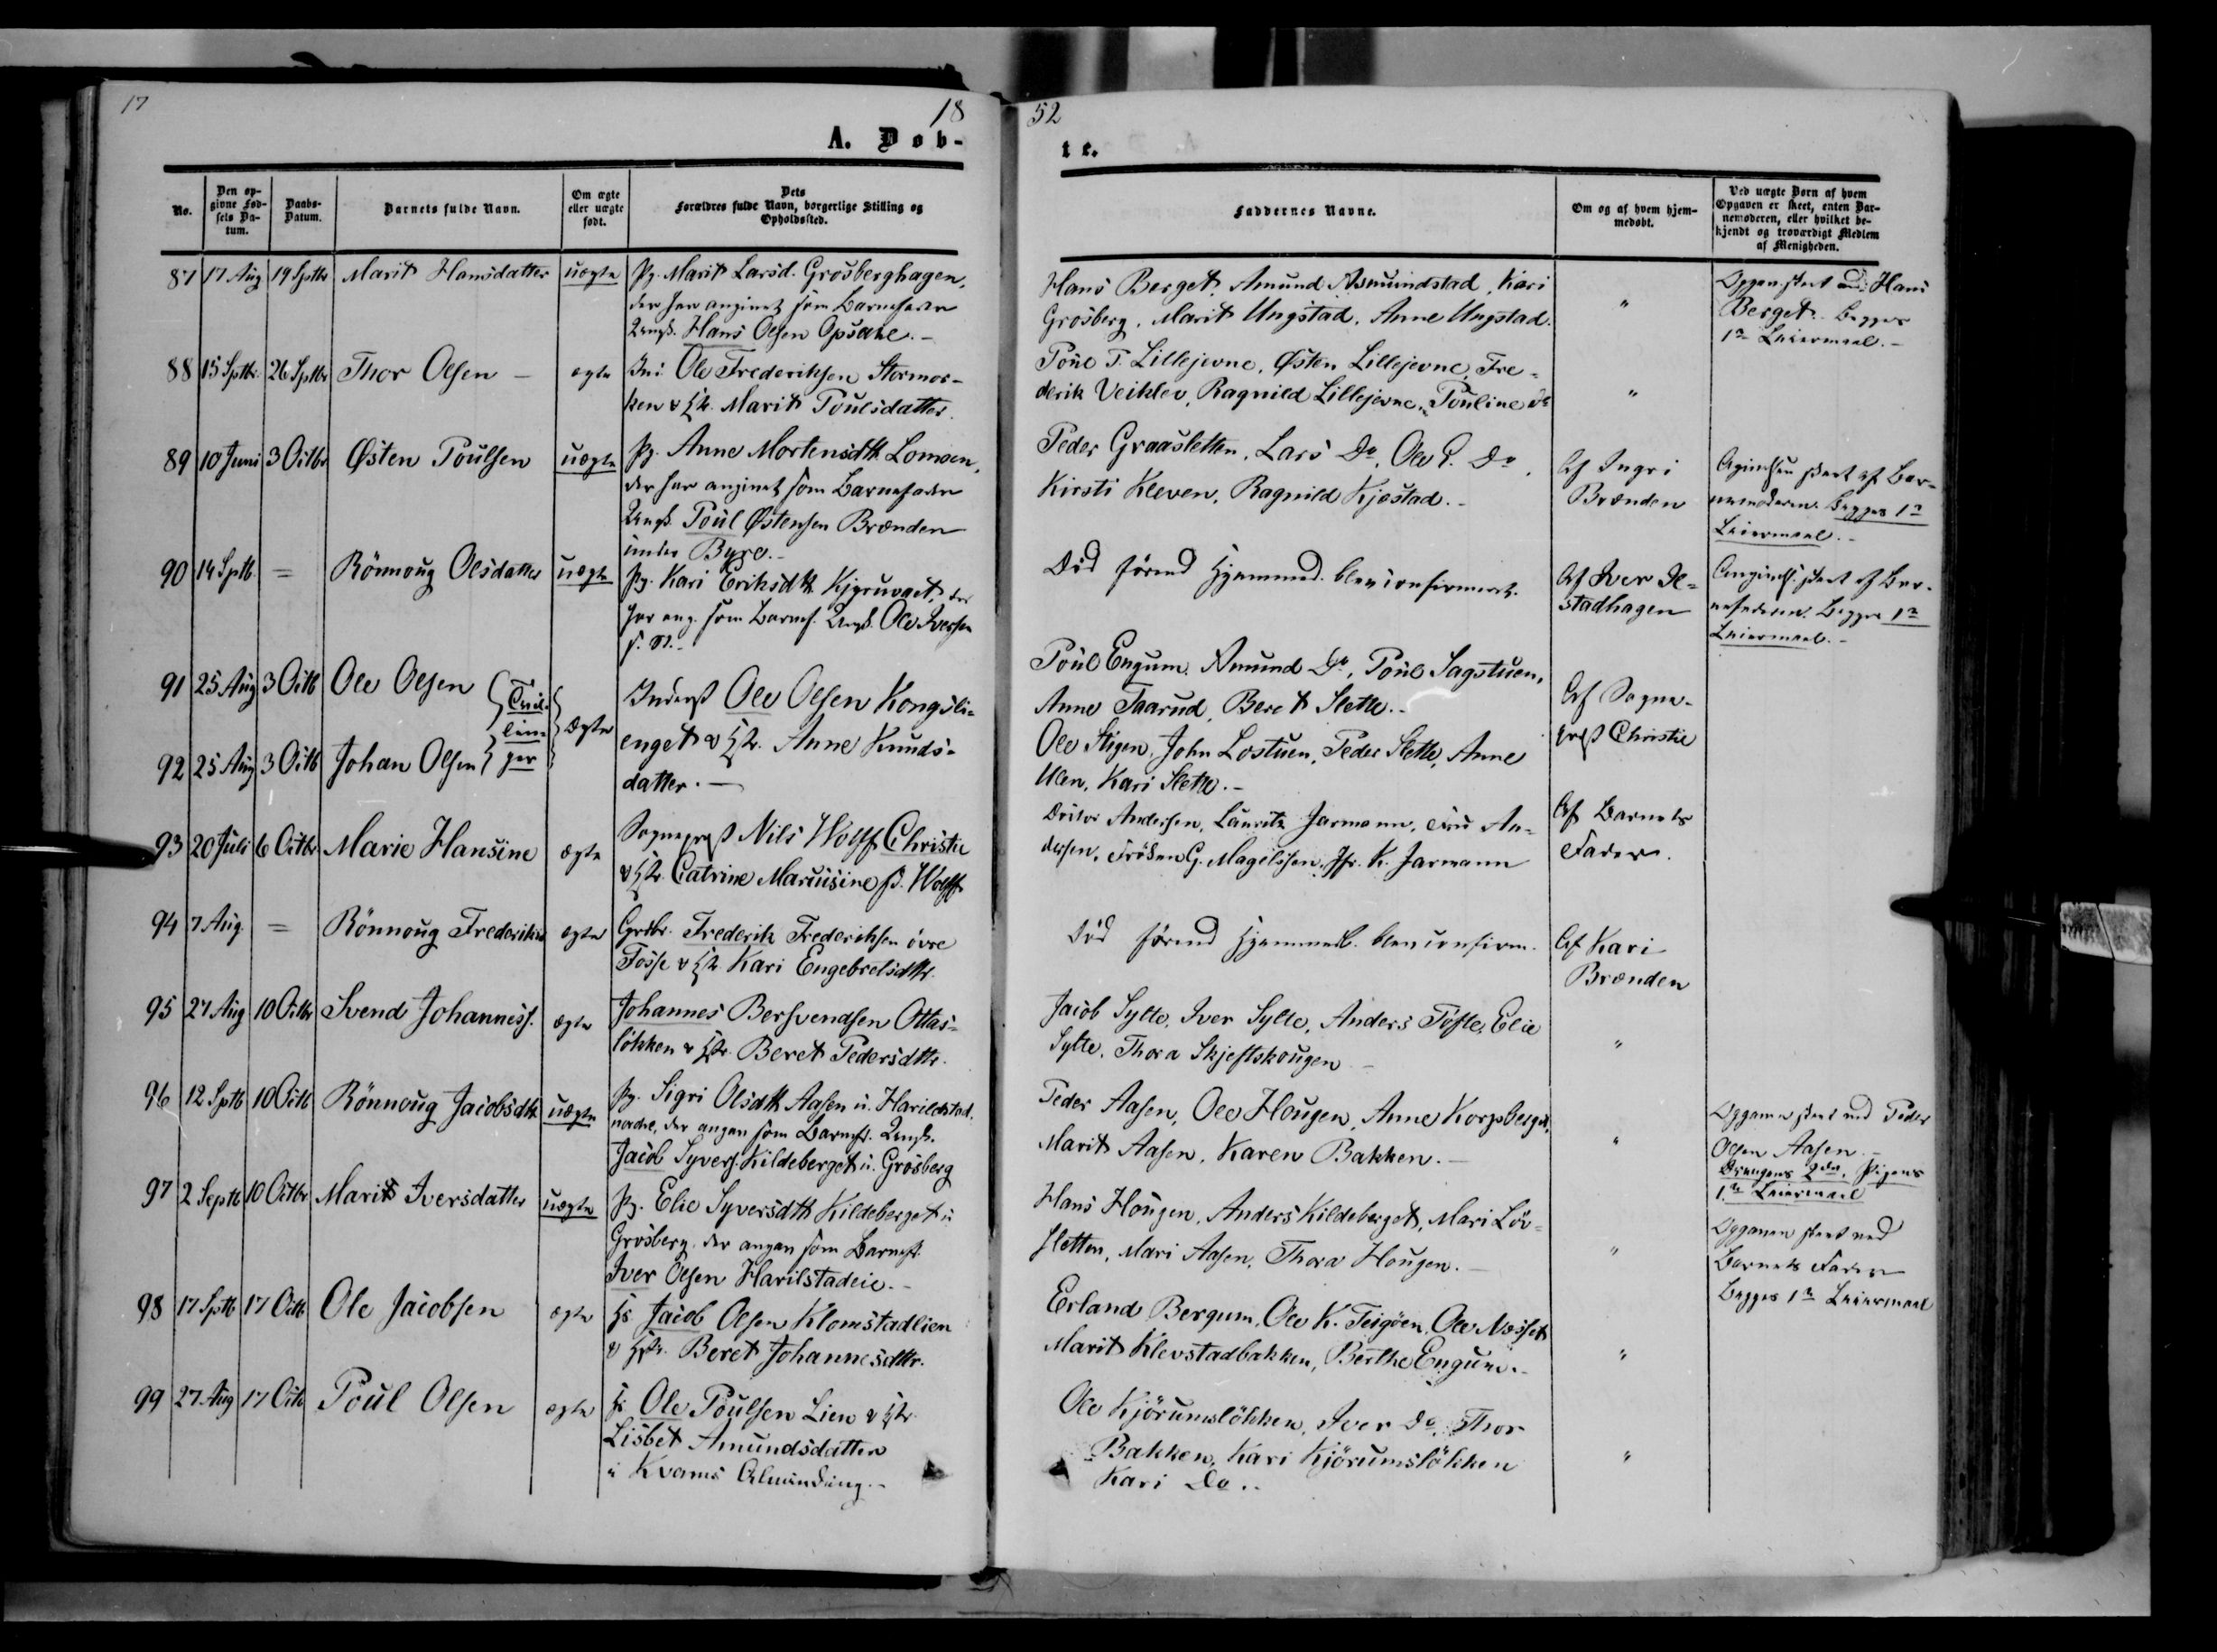 17
18
52
A. Døb-
te.
No.
Den op-
givne Fød-
sels Da-
tum.
Daabs-
Datum.
Barnets fulde Navn.
Om ægte
eller uægte
født.
Dets
Forældres fulde Navn, borgerlige Stilling og
Opholdssted.
Faddernes Navne.
Om og af hvem hjem-
medøbt.
Ved uægte Børn af hvem
Opgaven er skeet, enten Bar-
nemoderen, eller hvilket be-
kjendt og troværdigt Medlem
af Menigheden.
87 17 Aug 19 Sptbr Marit Hansdatter uægte Pg. Marit Larsd. Grosberghagen,
der har angivet som Barnefader
Ungk. Hans Olsen Opsahl.-
Hans Berget, Amund Asmundstad, Kari
Grosberg, Marit Ungstad, Anne Ungstad.
"
Opgav. skeet ved Hans
Berget. Begges
1ste Leiermaal.-
88 15 Sptbr. 26 Sptbr Thor Olsen - ægte Ole Frederiksen Stormor-
ken & H. Marit Poulsdatter.
Poul P. Lillejevne, Østen Lillejevne, Fre-
derik Veiklev, Ragnild Lillejevne, Pouline do
"
89 10 Juni 3 Octbr Østen Poulsen uægte Pg. Anne Mortensdtr Lomoen,
der har angivet som Barnefader
Ungk. Poul Østensen Brænden
under Byre.-
Peder Graasletten, Lars Do, Ole P. Do.
Kirsti Kleven, Ragnild Kjøstad.-
Af Ingri
Brænden
Angivelsen skeet af Bar-
nemoderen. Begges 1ste
Leiermaal.-
90 14 Sptb. = Rönnoug Olsdatter uægte Pg. Kari Eriksdtr Kjgruvaet, der
har ang. som Barnef. Ungk. Ole Iversen
s. St.-
Död förend Hjemmed. blev confirmeret.
Af Iver Il-
stadhagen
Angivels. skeet af Bar-
nefaderen. Begges 1ste
Leiermaal.-
91 25 Aug 3 Octb Ole Olsen
Tvil-
lin-
ger
92 25 Aug 3 Octb Johan Olsen
Ægte
Inderst Ole Olsen Kongsli-
enget & H. Anne Knuds-
datter.-
Poul Engum, Amund Do, Poul Sagstuen,
Anne Taarud, Beret Slette.-
Ole Stigen, John Lostuen, Peder Slette, Anne
Ulen, Kari Slette.-
Af Sogne-
prest Christie
93 20 Juli 6 Octbr Marie Hansine ægte Sogneprest Nils Wolff Christie
& H. Catrine Marcusine f. Wolff
Doctor Andersen, Lauritz Jarmann, Fru An-
dersen, Fröken G. Magelssen, Jfr. K. Jarmann
Af Barnets
Fader.
94 7 Aug. = Rönnoug Frederiksd ægte Grdbr. Frederik Frederiksen övre
Fosse & H. Kari Engebretsdtr.
Död förend Hjemmed. blev confirm.
Af Kari
Brænden
95 27 Aug 10 Octbr Svend Johanness. ægte Johannes Bersvendsen Ottas-
løkken & H. Beret Pedersdtr.
Jacob Sylte, Iver Sylte, Anders Tofte, Elie
Sylte, Thora Skjeftskougen
"
96 12 Sptb 10 Octb Rönnoug Jacobsdtr uægte Pg. Sigri Olsdtr Aasen u. Harildstad
nordre, der angav som Barnef. Ungk.
Jacob Syvers. Kildeberget u. Grosberg
Peder Aasen, Ole Hougen, Anne Korpsberget,
Marit Aasen, Karen Bakken.-
"
Opgaven skeet ved Peder
Olsen Aasen.-
Drengens 2det, Pigens
1ste Leiermaal
97 2 Septb 10 Octbr Marit Iversdatter uægte Pg. Elie Syversdtr Kildeberget u
Grosberg, der angav som Barnef.
Iver Olsen Harilstadeie.-
Hans Hougen, Anders Kildeberget, Mari Löv-
sletten, Mari Aasen, Thora Hougen.-
"
Opgaven skeet ved
Barnets Fader
Begges 1ste Leiermaal
98 17 Sptb 17 Octb Ole Jacobsen ægte Hs. Jacob Olsen Klomstadlien
& H. Beret Johannesdtr.
Erland Bergum, Ole K. Teigöen, Ole Næsset
Marit Klevstadbakken, Berthe Engum.-
"
99 27 Aug 17 Octb Poul Olsen ægte Hs. Ole Poulsen Lien & H.
Lisbet Amundsdatter
i Kvams Alminding.-
Ole Kjörumslökken, Iver Do, Thor
Bakken, Kari Kjörumslökken
Kari Do.-
"